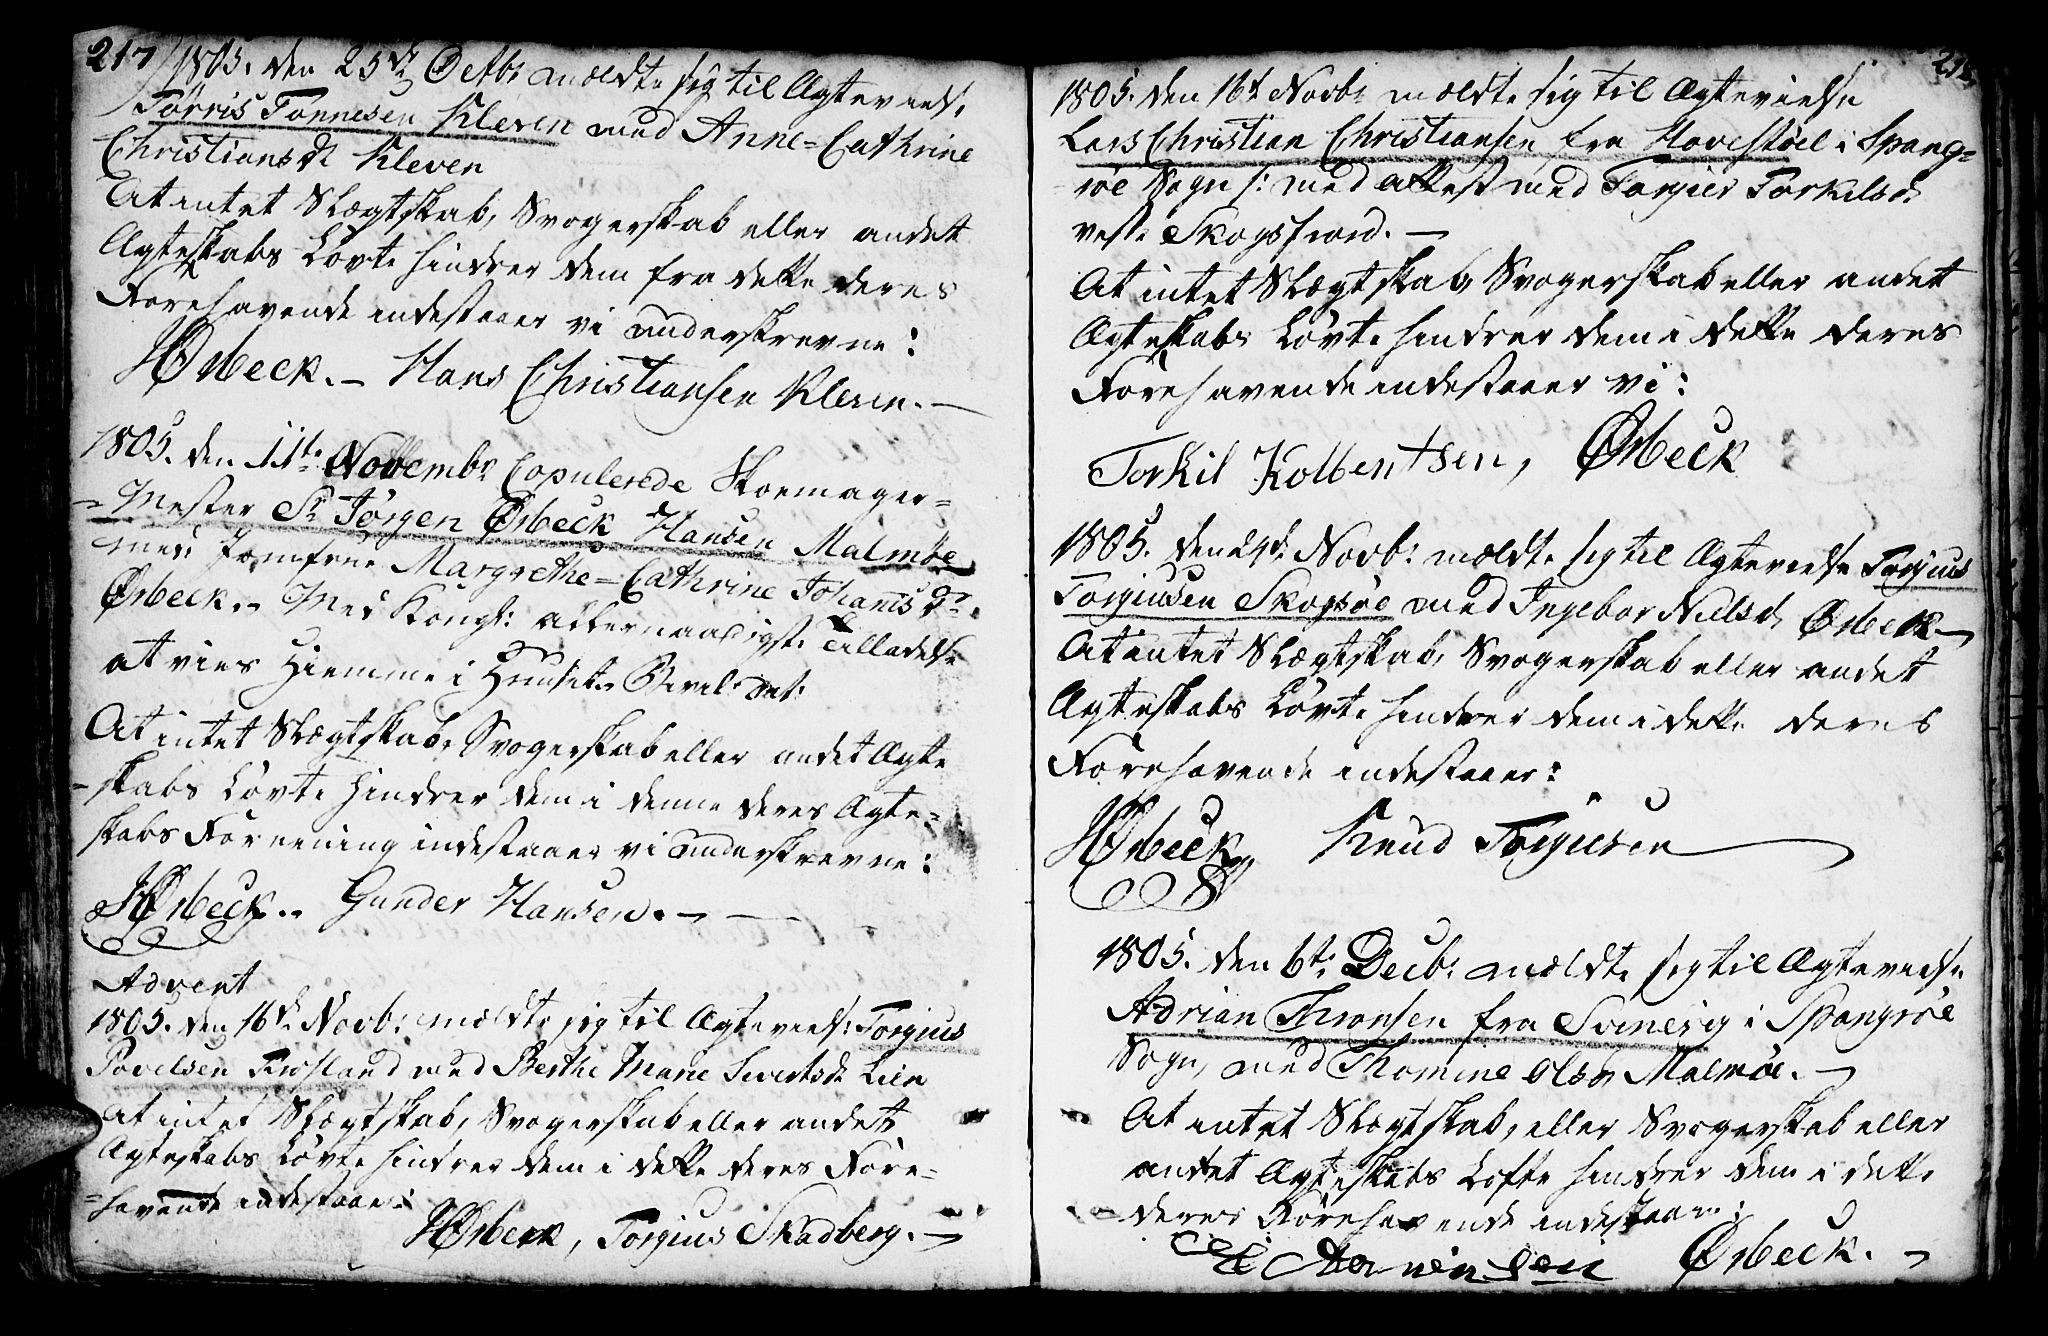 217
1805. den 25de Octbr mældte sig til Ægtevielse
Tørris Tønnesen Kleven med Anne=Cathrine
Christiansdr Kleven
At intet Slægtskab, Svogerskab eller andet
Ægteskabs Løvte hindrer dem fra dette deres
Forehavende indestaaer vi underskrevne:
HØrbeck. – Hans Christiansen Kleven. –
1805. den 11te Novembr Copulerede Skoemager=
=Mester Sr Jörgen Ørbeck Hansen Malmøe
med Jomfrue Margrethe=Cathrine Johansdr
Ørbeck. – Med Kongl: allernaadigste Tilladelse
at vies Hiemme i Huuset.
At intet Slægtskab, Svogerskab eller andet Ægte
=skabs Løvte hindrer dem i denne deres Ægte=
skabs Forening indestaaer vi underskrevne:
HØrbeck. – Gunder Hansen. –
Advent
1805. den 16de Novbr mældte sig til Ægtevielse Torgius
Povelsen Frøsland med Berthe Marie Sivertsdr Lien
At intet Slægtskab, Svogerskab eller andet
Ægteskabs Løvte hindrer dem i dette deres Fore=
=havende indestaaer:
HØrbeck, Torgius Skadberg. –
1805. den 16de Novbr mældte sig til Ægtevielse
Lars Christian Christiansen fra Hovestøel i Spang=
røe Sogn /: med attest med Torgier Torkilsdr
vestre Skogsfiord. –
At intet Slægtskab, Svogerskab eller andet
Ægteskabs Løvte hindrer dem i dette deres
Forehavende indestaaer vi:
Torkil Kolbentsen, Ørbeck
1805. den 24de Novbr mældte sig til Ægtevielse Torgius
Torgiusen Skogsøe med Ingebor Nielsdr Ørbeck –
At intet Slægtskab, Svogerskab eller andet
Ægteskabs Løvte hindrer dem i dette deres
Forehavende indestaaer:
HØrbeck Knud Torgiusen
1805. den 6te Decbr mældte sig til Ægtevielse
Adrian Thronsen fra Svinevig i Spangrøe
Sogn, med Thomine Olsdr Malmøe. –
At intet Slægtskab, eller Svogerskab eller
andet Ægteskabs Lofte hindrer dem i dette
deres Forehavende indestaaer:
Ørbeck. –